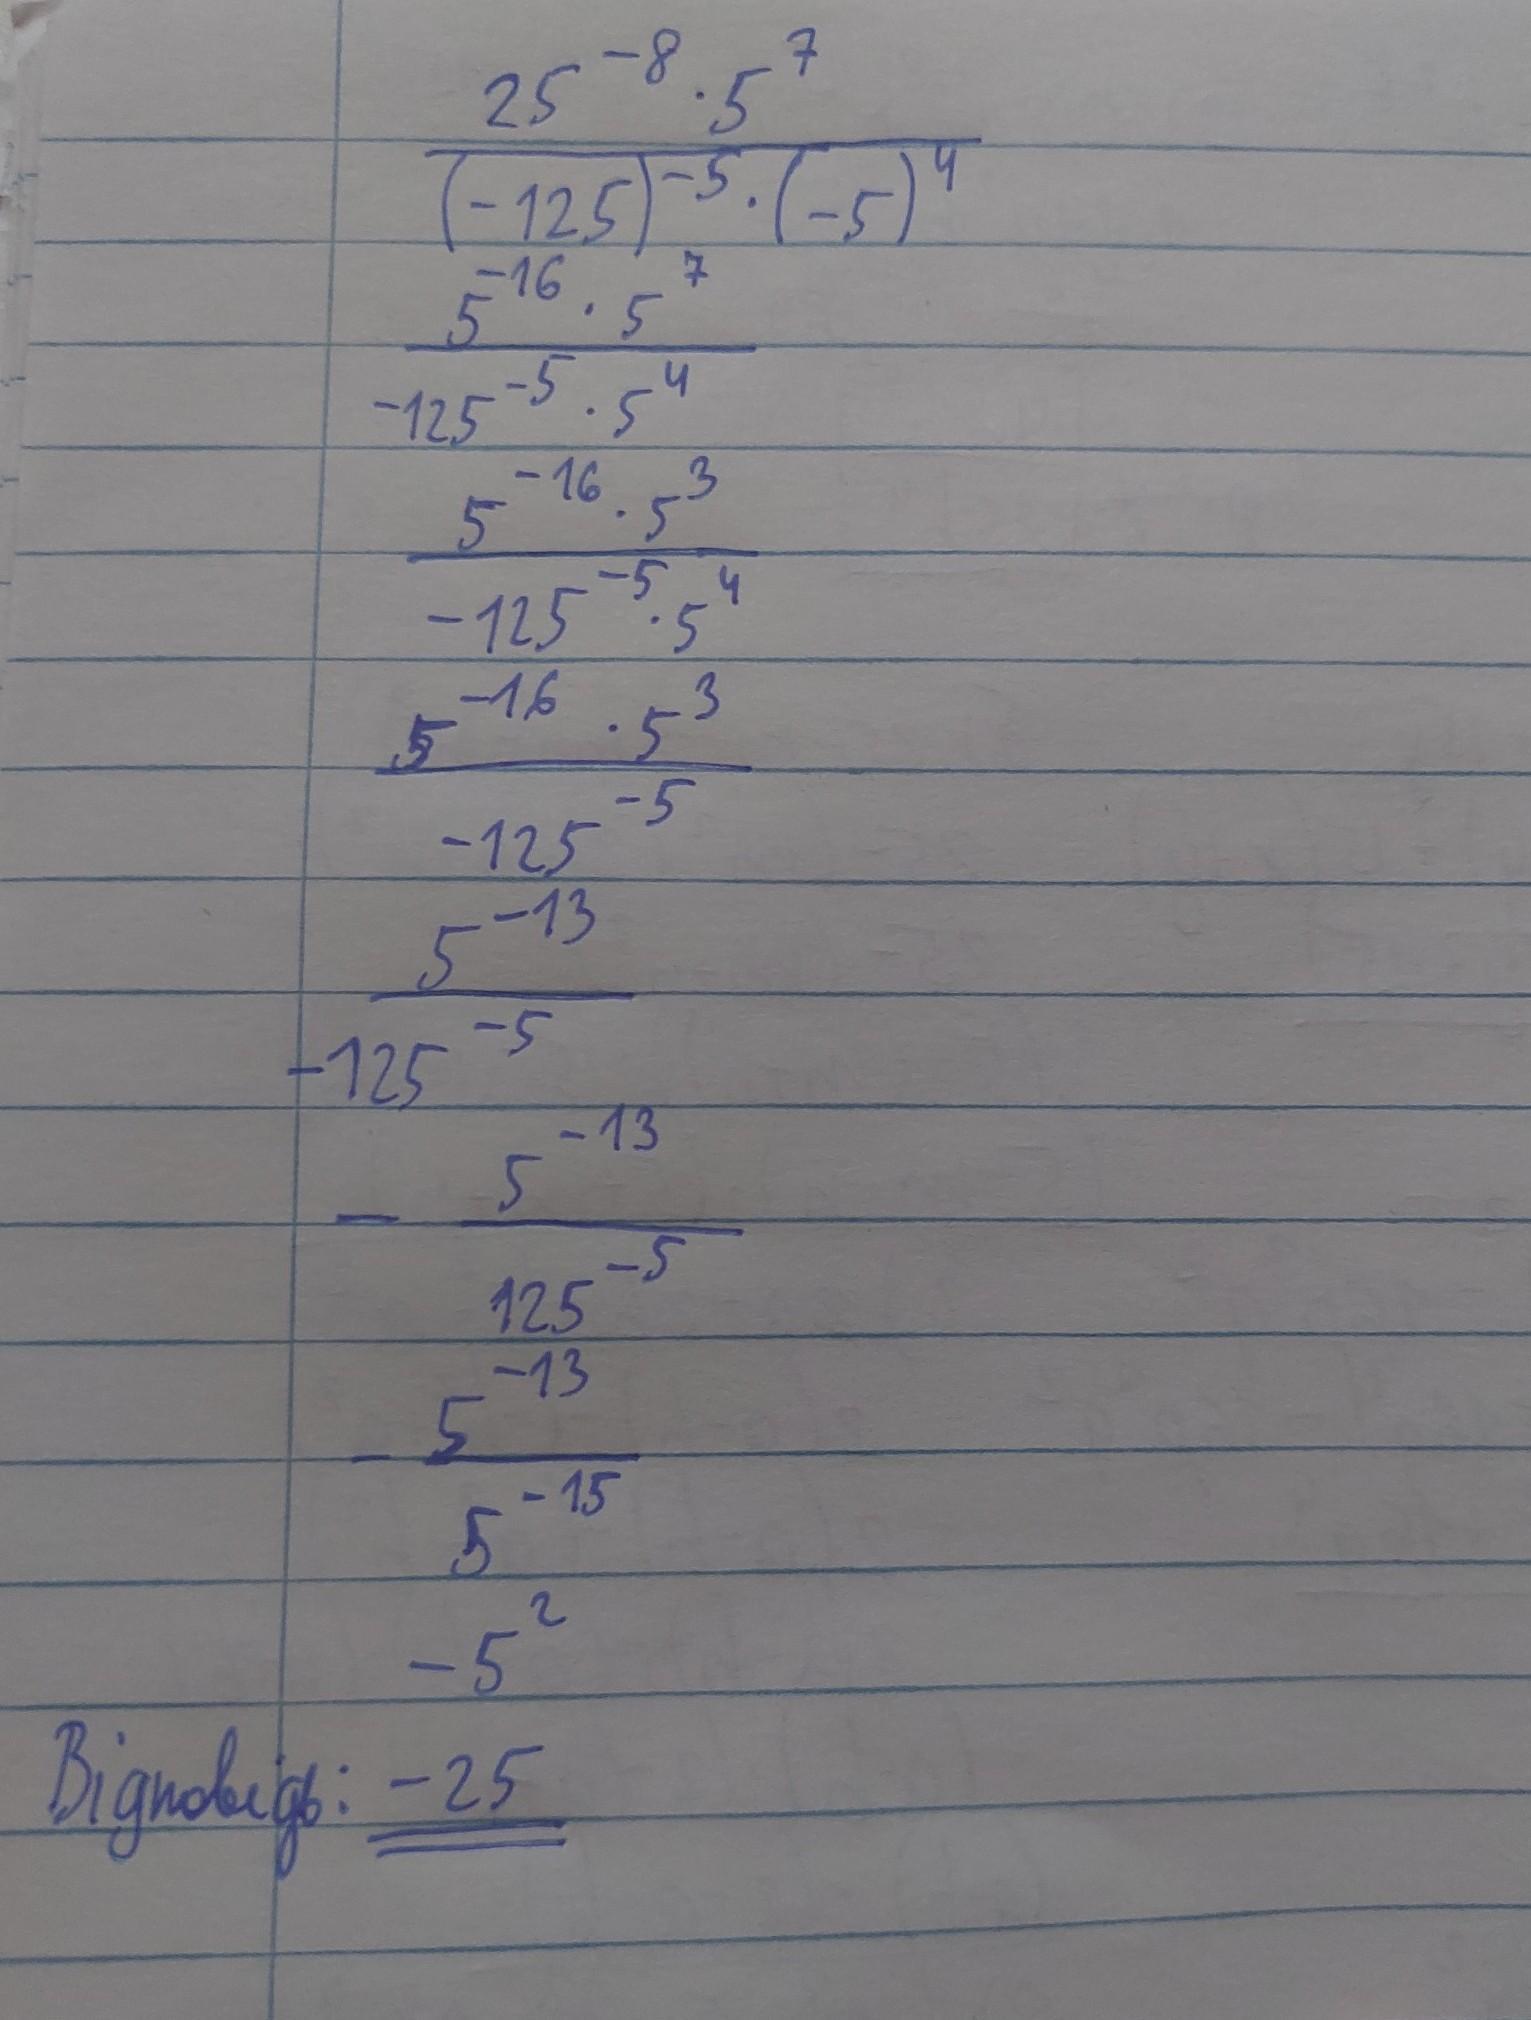 25^-8 · 5^7
(-125)^-5 · (-5)^4
5^-16 · 5^7
-125^-5 · 5^4
5^-16 · 5^3
-125^-5 · 5^4
5^-16 · 5^3
-125^-5
5^-13
-125^-5
- 5^-13
125^-5
- 5^-13
5^-15
-5^2
Відповідь: -25